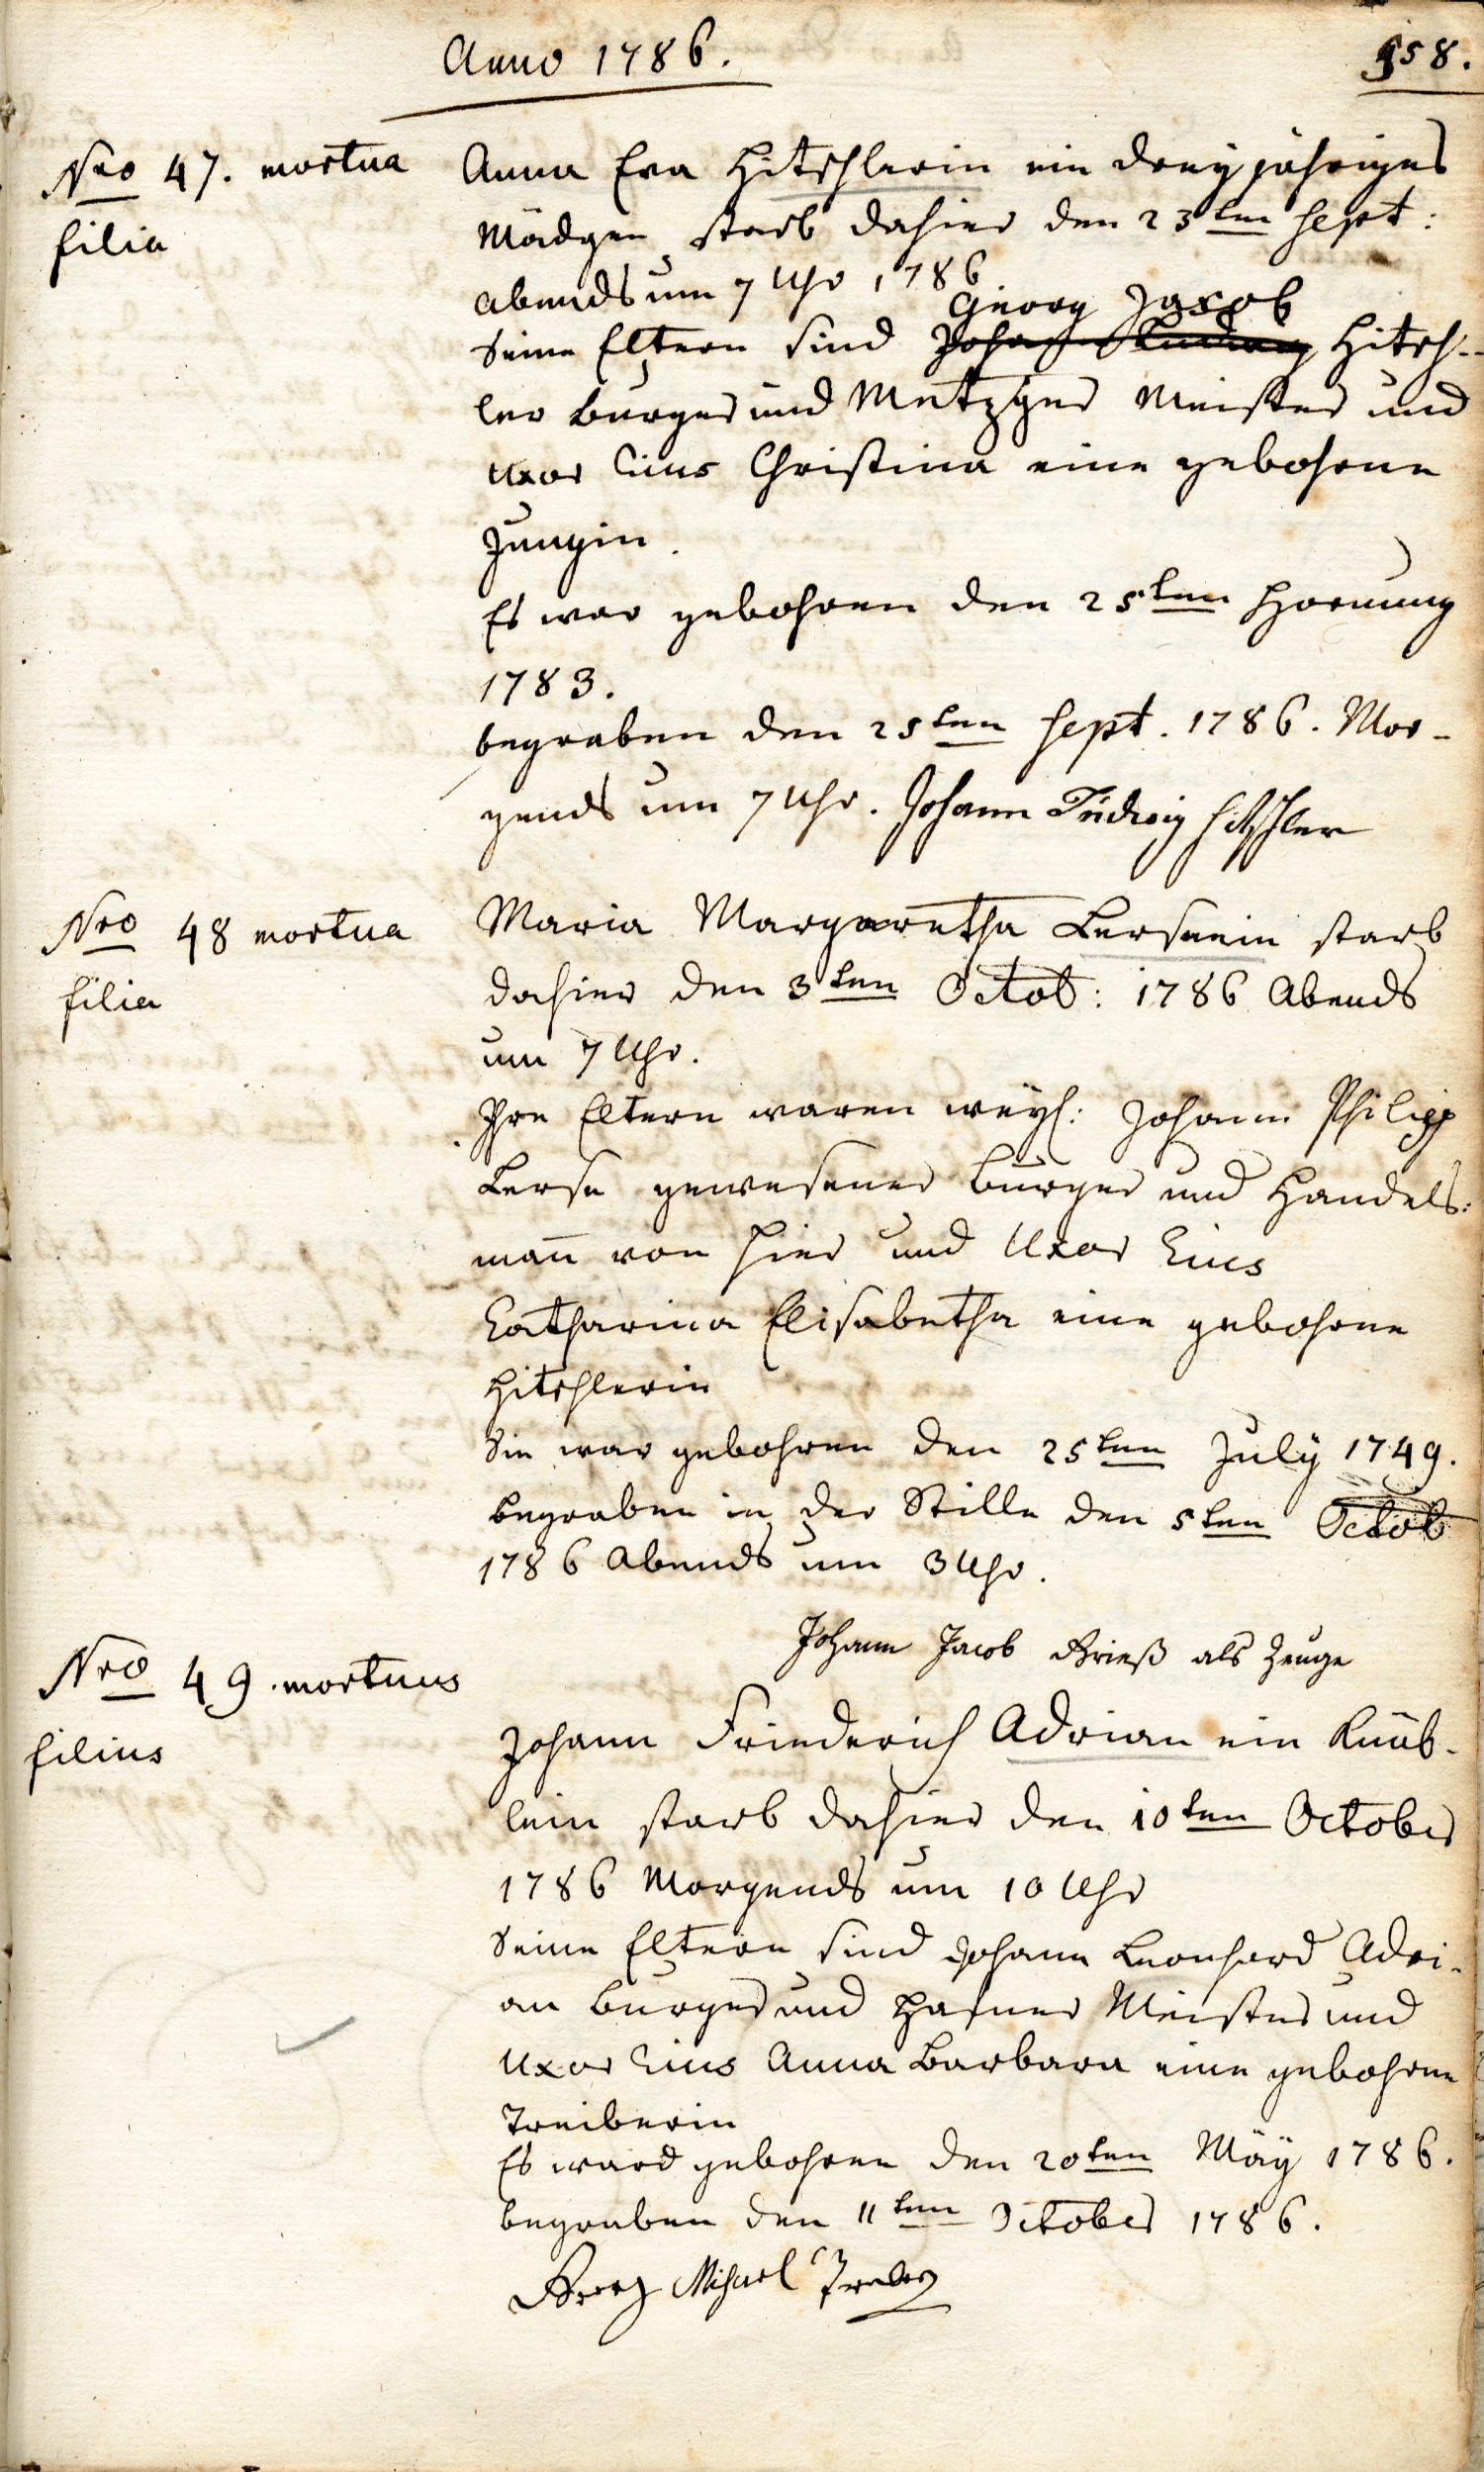 Anno 1786.
158.
Nro 47. mortua
filia
Anna Eva Hitschlerin ein dreyjähriges
Mädgen starb dahier den 23ten Sept:
abends um 7 Uhr 1786
Georg Jacob
Seine Eltern sind Johann Ludwig Hitsch-
ler burger und Metzger Meister und
Uxor Eius Christina eine gebohrne
Jungin.
Es war gebohren den 25ten Hornung
1783.
begraben den 25ten Sept. 1786. Mor-
gends um 7 Uhr. Johann Ludwig Hitschler
Nro 48 mortua
filia
Maria Margaretha Lersein starb
dahier den 3ten Octob: 1786 Abends
um 7 Uhr.
Ihre Eltern waren weyl: Johann Philipp
Lerse gewesener burger und Handels:
mañ von hier und Uxor Eius
Catharina Elisabetha eine gebohrne
Hitschlerin
Sie war gebohren den 25ten July 1749.
begraben in der Stille den 5ten Octob
1786 Abends um 3 Uhr.
Johann Jacob Grieß als Zeuge
Nro 49. mortuus
filius
Johann Friederich Adrian ein Knäb-
lein starb dahier den 10ten October
1786 Morgends um 10 Uhr
Seine Eltern sind Johann Leonhard Adri-
an burger und Hafner Meister und
Uxor Eius Anna Barbara eine gebohrne
Treiberin
Es ward gebohren den 20ten Mäy 1786.
begraben den 11ten October 1786.
Georg Michael